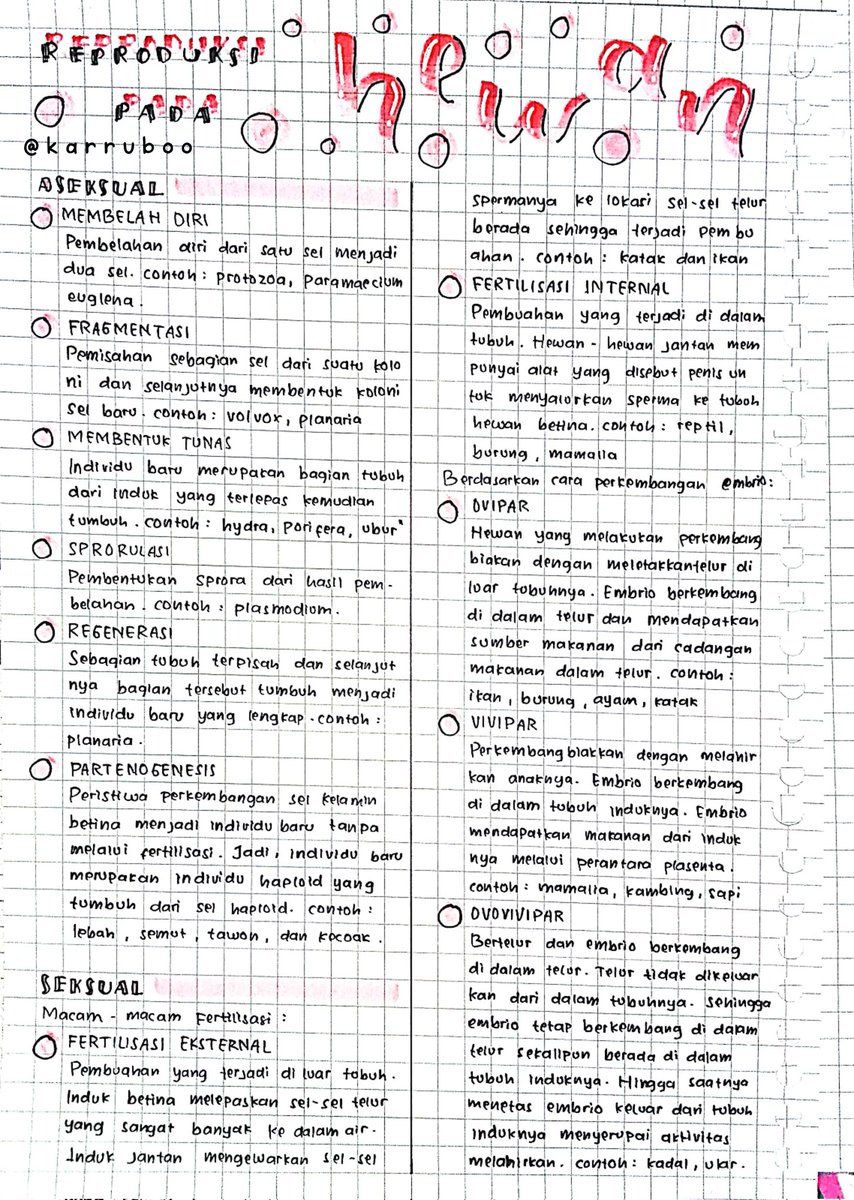 REPRODUKSI
PADA
hewan
@karruboo
ASEKSUAL
MEMBELAH DIRI
Pembelahan diri dari satu sel menjadi
dua sel. contoh : protozoa, Paramaecium
euglena.
FRAGMENTASI
Pemisahan sebagian sel dari suatu kolo
ni dan selanjutnya membentuk koloni
sel baru. contoh : volvox, planaria
MEMBENTUK TUNAS
Individu baru merupakan bagian tubuh
dari induk yang terlepas kemudian
tumbuh. contoh : hydra, porifera, ubur"
SPRORULASI
Pembentukan sprora dari hasil pem-
belahan. contoh : plasmodium.
REGENERASI
Sebagian tubuh terpisah dan selanjut
nya bagian tersebut tumbuh menjadi
individu baru yang lengkap. contoh :
planaria.
PARTENOGENESIS
Peristiwa perkembangan sel kelamin
betina menjadi individu baru tanpa
melalui fertilisasi. Jadi, individu baru
merupakan individu haploid yang
tumbuh dari sel haploid. contoh :
lebah, semut, tawon, dan kecoak.
SEKSUAL
Macam - macam Fertilisasi :
FERTILISASI EKSTERNAL
Pembuahan yang terjadi di luar tubuh.
Induk betina melepaskan sel-sel telur
yang sangat banyak ke dalam air.
Induk jantan mengeluarkan sel-sel
spermanya ke lokasi sel-sel telur
berada sehingga terjadi pembu
ahan. contoh : katak dan ikan
FERTILISASI INTERNAL
Pembuahan yang terjadi di dalam
tubuh. Hewan - hewan jantan mem
punyai alat yang disebut penis un
tuk menyalurkan sperma ke tubuh
hewan betina. contoh : reptil,
burung, mamalia
Berdasarkan cara perkembangan embrio:
OVIPAR
Hewan yang melakukan perkembang
biakan dengan meletakkantelur di
luar tubuhnya. Embrio berkembang
di dalam telur dan mendapatkan
sumber makanan dari cadangan
makanan dalam telur. contoh :
ikan, burung, ayam, katak
VIVIPAR
Perkembangbiakkan dengan melahir
kan anaknya. Embrio berkembang
di dalam tubuh induknya. Embrio
mendapatkan makanan dari induk
nya melalui perantara plasenta.
contoh : mamalia, kambing, sapi
OVOVIVIPAR
Bertelur dan embrio berkembang
di dalam telur. Telur tidak dikeluar
kan dari dalam tubuhnya. Sehingga
embrio tetap berkembang di dalam
telur sekalipun berada di dalam
tubuh induknya. Hingga saatnya
menetas embrio keluar dari tubuh
induknya menyerupai aktivitas
melahirkan. contoh : kadal, ular.